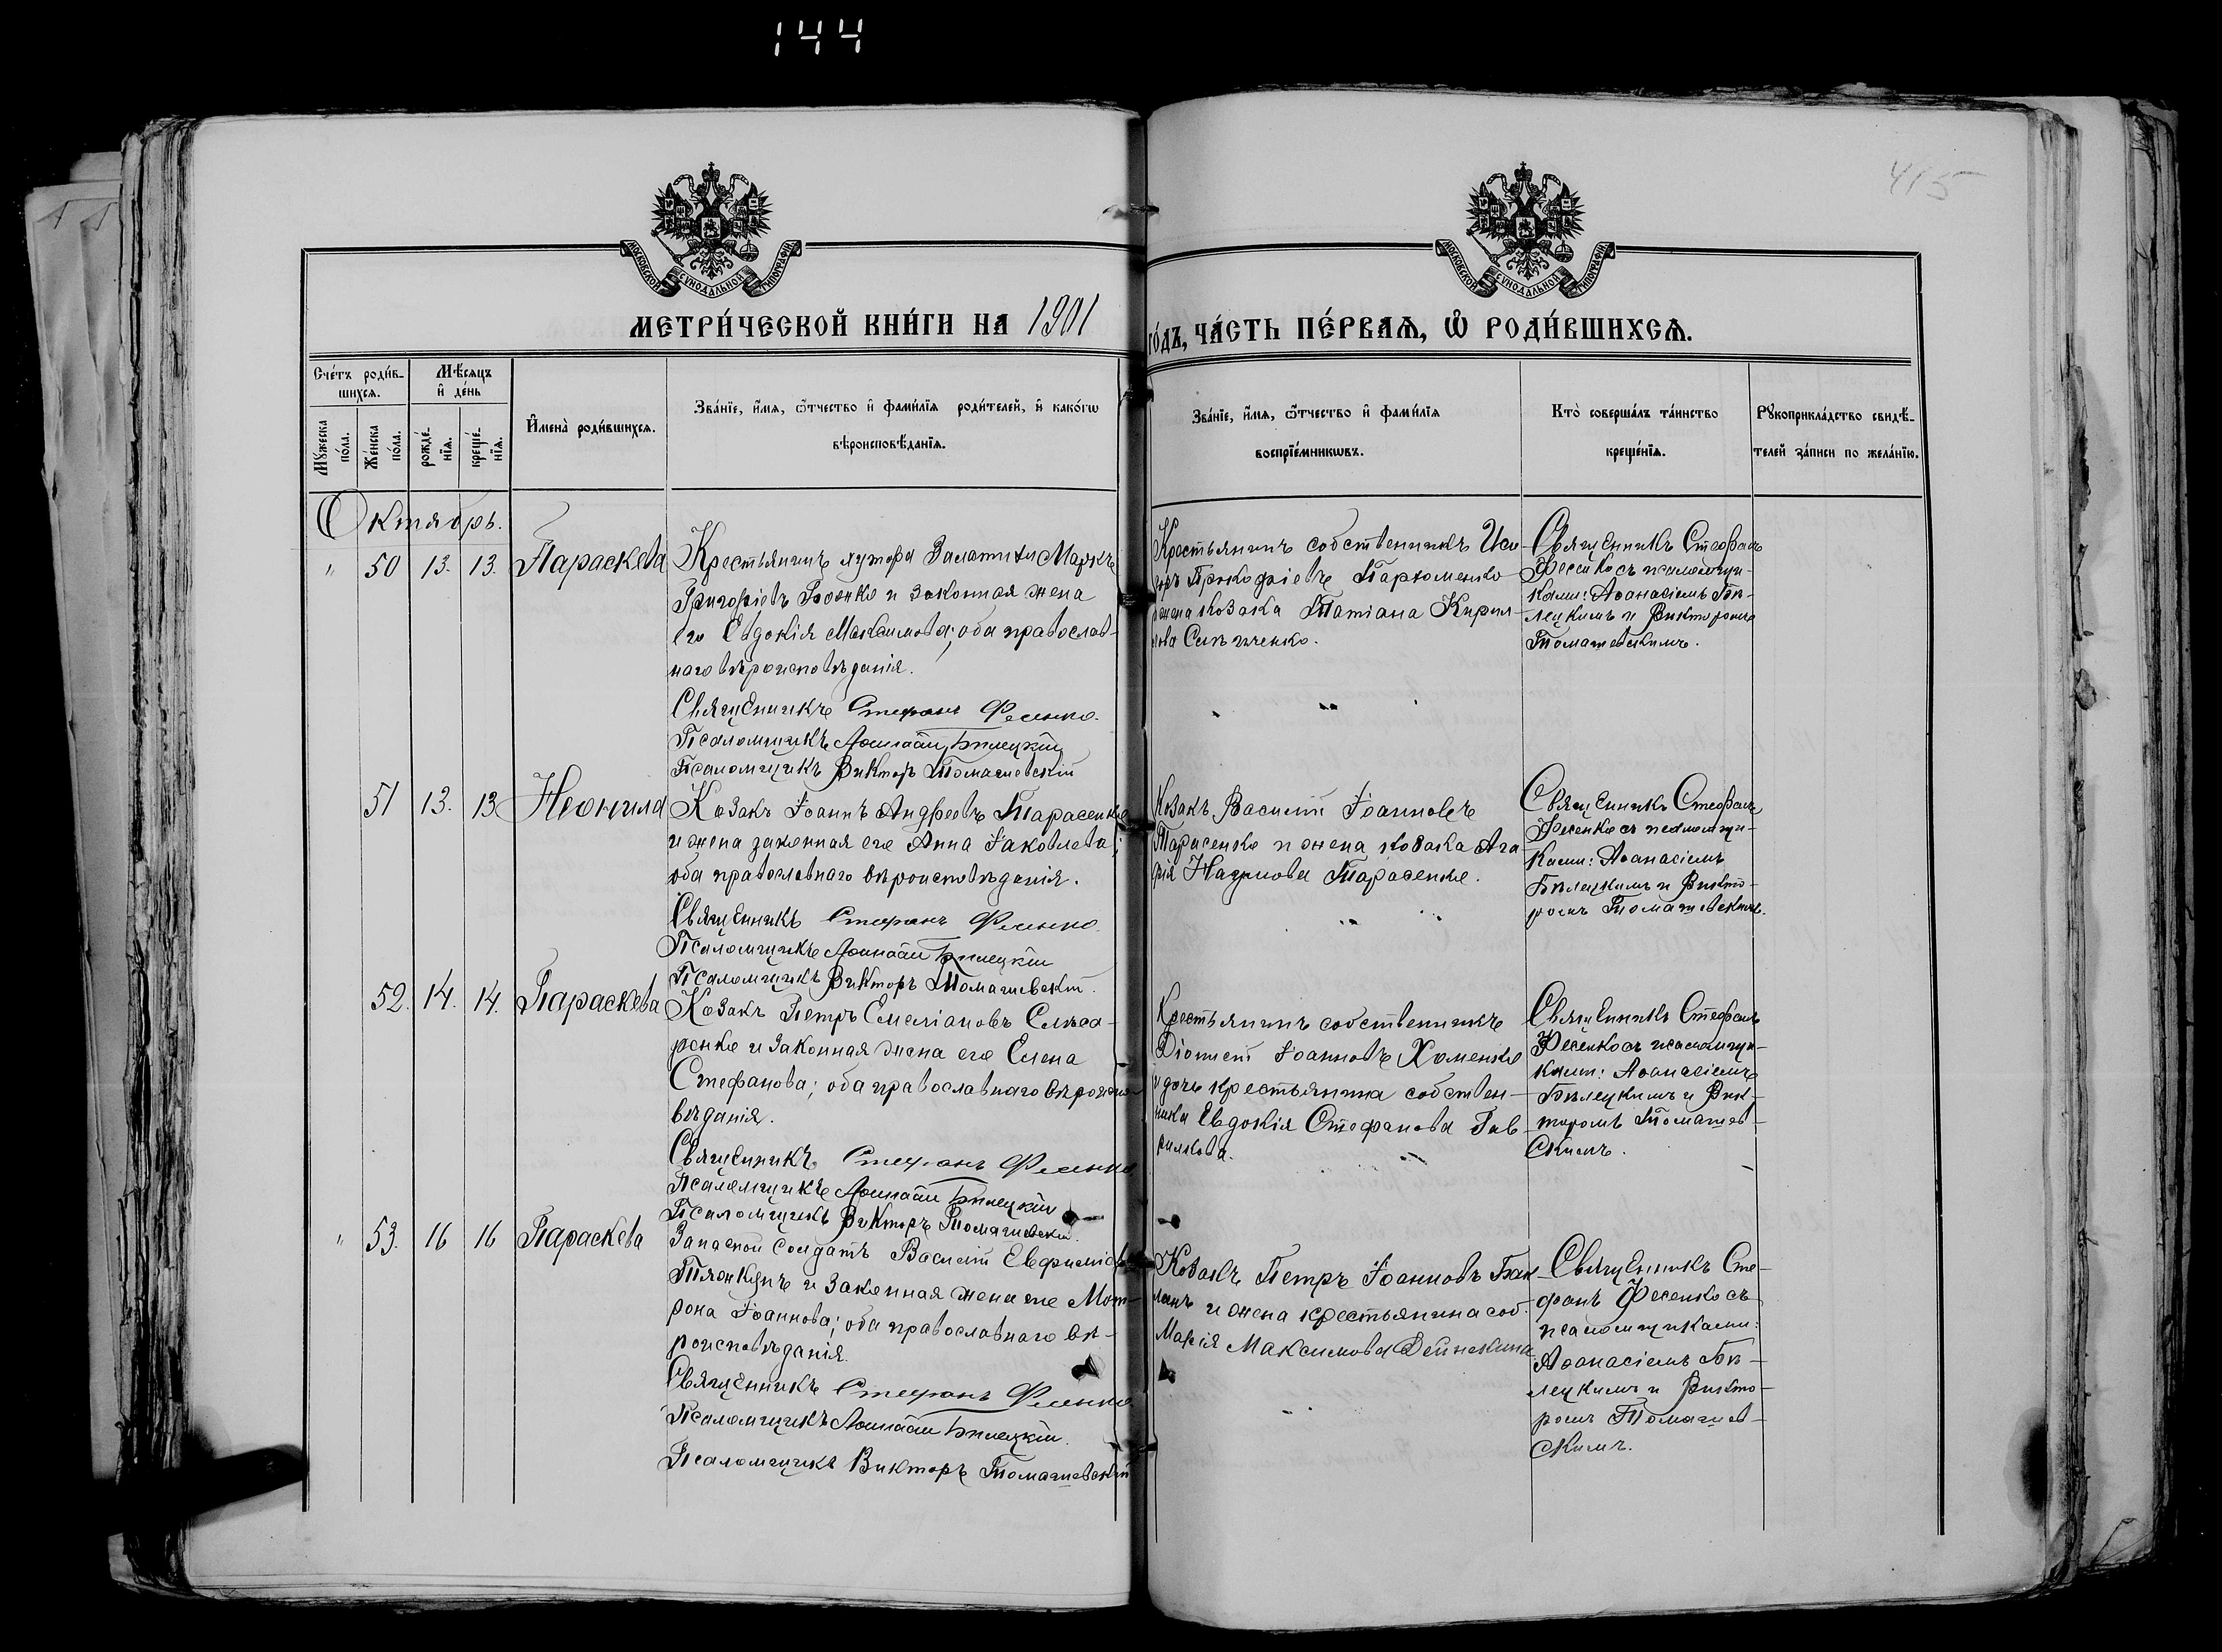 144
415
МОСКОВСКОЙ СѴНОДАЛЬНОЙ ТИПОГРАФІИ
МОСКОВСКОЙ СѴНОДАЛЬНОЙ ТИПОГРАФІИ
МЕТРИ́ЧЕСКОЙ КНИ́ГИ НА 1901
го́дъ, ЧА́СТЬ ПЕ́РВАѦ, Ѿ РОДИ́ВШИХСѦ.
Сче́тъ роди́в-
шихсѧ.
Мꙋжеска
по́ла.
Же́нска
по́ла.
Мѣ́сѧцъ
и҆ де́нь
рожде́-
нїѧ.
креще́-
нїѧ.
И҆мена̀ роди́вшихсѧ.
Зва́нїе, и҆́мѧ, ѻ҆́тчество и҆ фами́лїѧ роди́телей, и҆ како́гѡ
вѣроисповѣ́данїѧ.
Зва́нїе, и҆́мѧ, ѻ҆́тчество и҆ фами́лїѧ
воспрїе́мникѡвъ.
Кто̀ соверша́лъ та́инство
креще́нїѧ.
Рꙋкоприкла́дство свидѣ́-
телей за́писи по жела́нїю.
Октябрь.
" 50 13. 13. Параскева
Крестьянинъ хутора Маркъ
Григоріевъ и законная жена
его Евдокія Максимова; оба православ-
наго вѣроисповѣданія.
Священникъ Стефанъ Фесенко.
Псаломщикъ Аѳанасій Бѣлецкій
Псаломщикъ Викторъ Томашевскій
Крестьянинъ собственникъ Иси-
доръ Прокофіевъ Пархоменко
жена козака Татіана Кирил-
лова
Священникъ Стефанъ
Фесенко съ псаломщи-
ками: Аѳанасіемъ Бѣ-
лецкимъ и Викторомъ
Томашевскимъ.
51 13. 13 Неонила
Козакъ Іоаннъ Андреевъ Тарасенко
и жена законная его Анна Іаковлева;
оба православнаго вѣроисповѣданія.
Священникъ Стефанъ Фесенко.
Псаломщикъ Аѳанасій Бѣлецкій
Псаломщикъ Викторъ Томашевскій.
Козакъ Василій Іоанновъ
Тарасенко и жена козака Ага-
фія Наумова Тарасенко.
Священникъ Стефанъ
Фесенко съ псаломщи-
ками: Аѳанасіемъ
Бѣлецкимъ и Викто-
ромъ Томашевскимъ.
52. 14. 14. Параскева
Козакъ Петръ Емеліановъ Слѣса-
ренко и законная жена его Елена
Стефанова; оба православнаго вѣроиспо-
вѣданія.
Священникъ Стефанъ Фесенко
Псаломщикъ Аѳанасій Бѣлецкій
Псаломщикъ Викторъ Томашевскій.
Крестьянинъ собственникъ
Діонисій Іоанновъ Хоменко
и дочь крестьянина собствен-
ника Евдокія Стефанова Гав-
рилкова.
Священникъ Стефанъ
Фесенко съ псаломщи-
ками: Аѳанасіемъ
Бѣлецкимъ и Вик-
торомъ Томашев-
скимъ.
" 53. 16 16 Параскева
Запасной солдатъ Василій Евфиміевъ
и законная жена его Мат-
рона Іоаннова; оба православнаго вѣ-
роисповѣданія.
Священникъ Стефанъ Фесенко.
Псаломщикъ Аѳанасій Бѣлецкій.
Псаломщикъ Викторъ Томашевскій
Козакъ Петръ Іоанновъ Бак-
ланъ и жена крестьянина соб.
Марія Максимова Дейнекина
Священникъ Сте-
фанъ Фесенко съ
псаломщиками:
Аѳанасіемъ Бѣ-
лецкимъ и Викто-
ромъ Томашев-
скимъ.